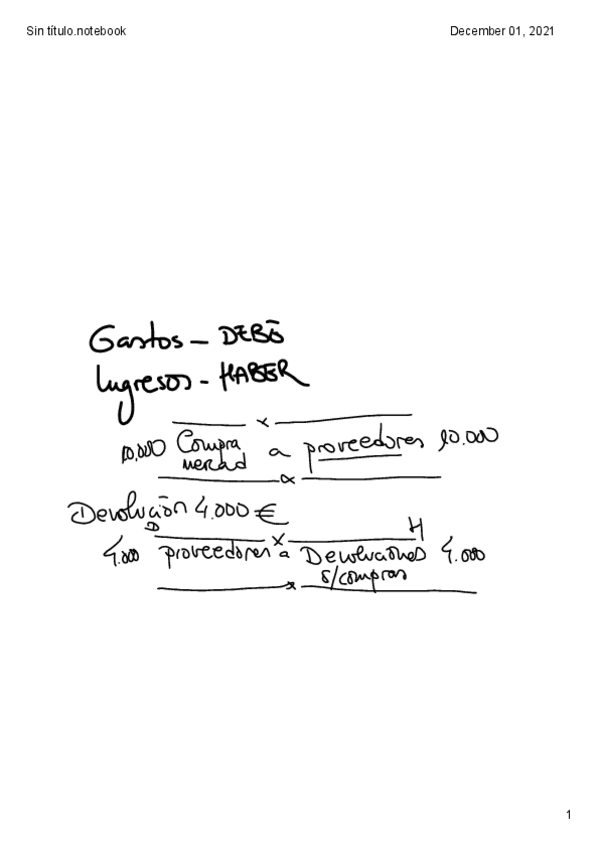 Sin título.notebook December 01, 2021
Gastos - DEBE
Ingresos - HABER
x
10.000 Compra a proveedores 10.000
mercad
x
Devolución 4.000 €
D x H
4.000 proveedores a Devoluciones 4.000
s/compras
x
1